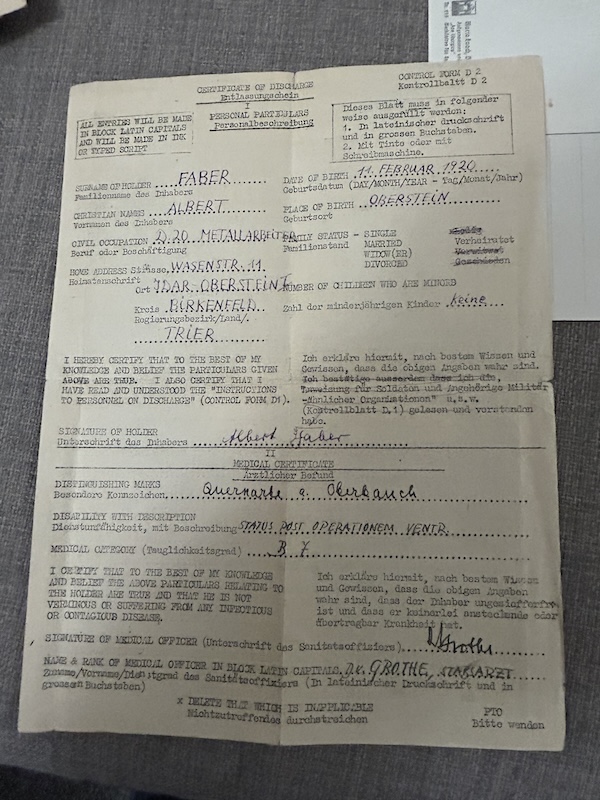 CERTIFICATE OF DISCHARGE
Entlassungschein
CONTROL FORM D 2
Kontrollbaltt D 2
I
PERSONAL PARTICULARS
Personalbeschreibung
ALL ENTRIES WILL BE MADE
IN BLOCK LATIN CAPITALS
AND WILL BE MADE IN INK
OR TYPED SCRIPT
Dieses Blatt muss in folgender
weise ausgefüllt werden:
1. In lateinischer druckschrift
und in grossen Buchstaben.
2. Mit Tinto oder mit
Schreibmaschine.
SURNAME OF HOLDER FABER
Familienname des Inhabers
DATE OF BIRTH 11. FEBRUAR 1920
Geburtsdatum (DAY/MONTH/YEAR - Tag/Monat/Jahr)
CHRISTIAN NAMES ALBERT
Vornamen des Inhabers
PLACE OF BIRTH OBERSTEIN
Geburtsort
CIVIL OCCUPATION D.20 METALLARBEITER
Beruf oder Beschäftigung
FAMILY STATUS - SINGLE
Familienstand MARRIED Verheiratet
WIDOW(ER)
DIVORCED
HOME ADDRESS Strasse WASENSTR. 11
Heimatanschrift
Ort IDAR-OBERSTEIN 1
NUMBER OF CHILDREN WHO ARE MINORS
Kreis BIRKENFELD
Zahl der minderjährigen Kinder keine
Regierungsbezirk/Land/.
TRIER
I HEREBY CERTIFY THAT TO THE BEST OF MY
KNOWLEDGE AND BELIEF THE PARTICULARS GIVEN
ABOVE ARE TRUE. I ALSO CERTIFY THAT I
HAVE READ AND UNDERSTOOD THE "INSTRUCTIONS
TO PERSONNEL ON DISCHARGE" (CONTROL FORM D1).
Ich erkläre hiermit, nach bestem Wissen und
Gewissen, dass die obigen Angaben wahr sind.
Ich bestätige ausserdem dass ich die
Anweisung für Soldaten und Angehörige Militär
-ähnlicher Organisationen" u.s.w.
(Kontrollblatt D.1) gelesen und verstanden
habe.
SIGNATURE OF HOLDER
Unterschrift des Inhabers Albert Faber
II
MEDICAL CERTIFICATE
Arztlicher Befund
DISTINGUISHING MARKS
Besondere Kennzeichen Quernarbe a. Oberbauch
DISABILITY WITH DESCRIPTION
Dienstunfähigkeit, mit Beschreibung STATUS POST OPERATIONEM VENTR.
MEDICAL CATEGORY (Tauglichkeitsgrad)
I CERTIFY THAT TO THE BEST OF MY KNOWLEDGE
AND BELIEF THE ABOVE PARTICULARS RELATING TO
THE HOLDER ARE TRUE AND THAT HE IS NOT
VERMINOUS OR SUFFERING FROM ANY INFECTIOUS
OR CONTAGIOUS DISEASE.
Ich erkläre hiermit, nach bestem Wissen
und Gewissen, dass die obigen Angaben
wahr sind, dass der Inhaber ungezieferfrei
ist und dass er keinerlei ansteckende oder
übertragbar Krankheit hat.
SIGNATURE OF MEDICAL OFFICER (Unterschrift des Sanitatsoffiziers) Grothe
NAME & RANK OF MEDICAL OFFICER IN BLOCK LATIN CAPITALS Dr. GROTHE, STABSARZT
Zuname/Vorname/Dienstgrad des Sanitätsoffiziers (In lateinischer Druckschrift und in
grossen Buchstaben)
x DELETE THAT WHICH IS INAPPLICABLE
Nichtzutreffendes durchstreichen
PTO
Bitte wenden